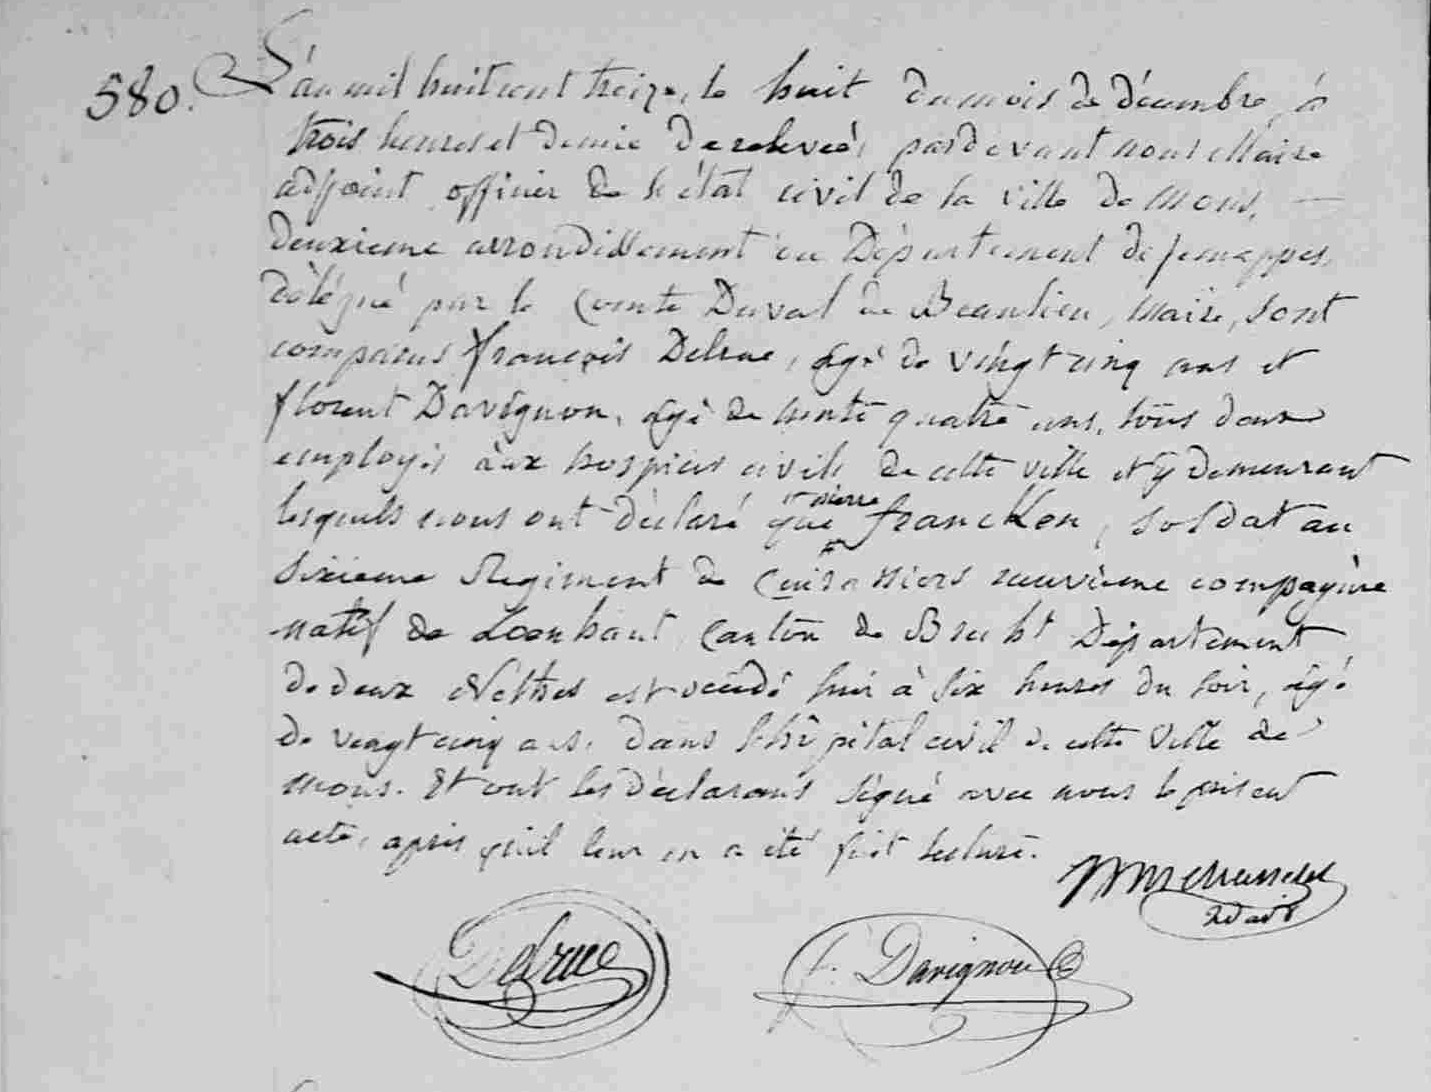 580. L'an mil huit cent treize, le huit du mois de décembre, à
trois heures et demie de relevée, pardevant nous Maire
adjoint officier de l'état civil de la ville de Mons,
deuxieme arrondissement du Département de Jemappes,
délégué par le Comte Duval de Beaulieu, Maire, sont
comparus françois Delrue, âgé de vingt cinq ans et
florent Davignon, âgé de trente quatre ans, tous deux
employés aux hospices civils de cette ville et y demeurant
pierre
lesquels nous ont déclaré que francken, soldat au
sixieme Regiment de Cuirassiers neuvieme compagnie
natif de Loenhout, Canton de Brecht Département
de deux Nethes est décédé hier à six heures du soir, âgé
de vingt cinq ans, dans l'hôpital civil de cette Ville de
Mons. Et ont les déclarans signé avec nous le présent
acte, après qu'il leur en a été fait lecture.
Delrue
F. Davignon